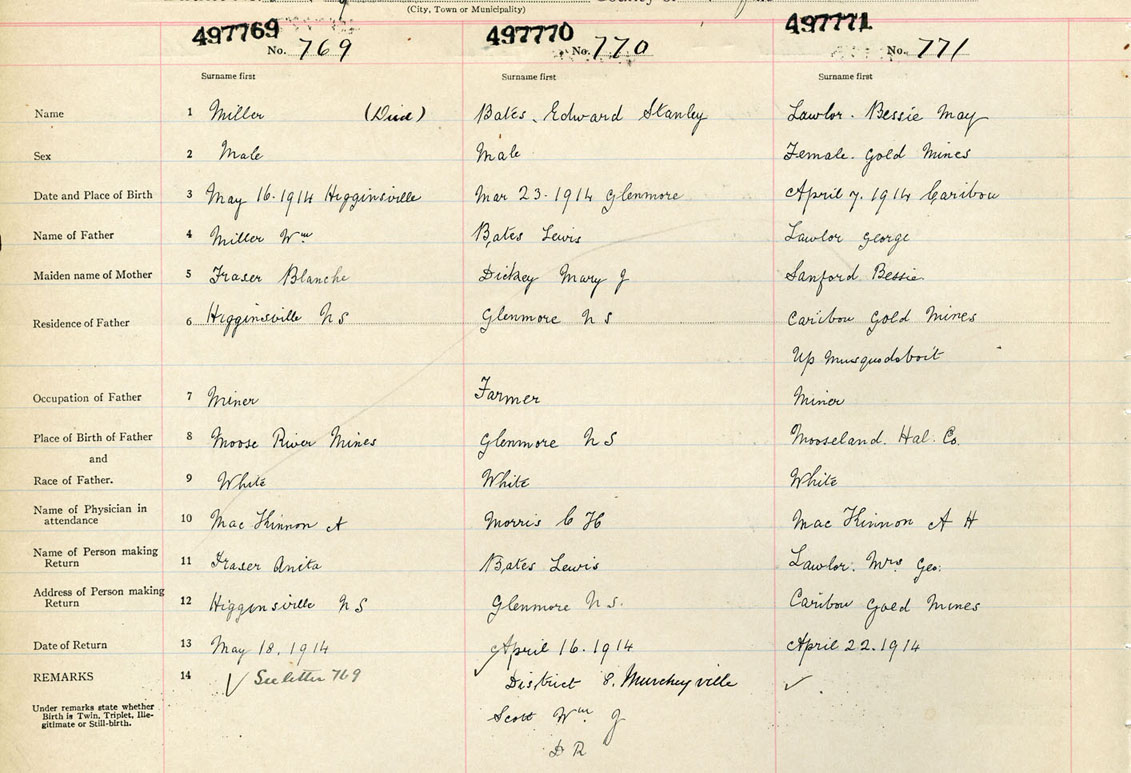 (City, Town or Municipality)
497769 497770 497771
No. 769 No. 770 No. 771
Surname first Surname first Surname first
Name 1 Miller (Died) Bates, Edward Stanley Lawlor. Bessie May
Sex 2 Male Male Female. Gold Mines
Date and Place of Birth 3 May 16-1914 Higginsville Mar 23-1914 Glenmore April 7. 1914 Caribou
Name of Father 4 Miller Wm Bates Lewis Lawlor George
Maiden name of Mother 5 Fraser Blanche Dickey Mary J Sanford Bessie
Residence of Father 6 Higginsville N S Glenmore N S Caribou Gold Mines
Up Musquodoboit
Occupation of Father 7 Miner Farmer Miner
Place of Birth of Father 8 Moose River Mines Glenmore N S Mooseland. Hal. Co.
and
Race of Father. 9 White White White
Name of Physician in
attendance 10 Mac Kinnon A Morris C H Mac Kinnon A H
Name of Person making
Return 11 Fraser Anita Bates Lewis Lawlor. Mrs Geo.
Address of Person making
Return 12 Higginsville N S Glenmore N S. Caribou Gold Mines
Date of Return 13 May 18. 1914 April 16. 1914 April 22. 1914
REMARKS 14 ✓ See letter 769 ✓ District 8. Murcheyville ✓
Under remarks state whether
Birth is Twin, Triplet, Ille-
gitimate or Still-birth.
Scott Wm J
D R